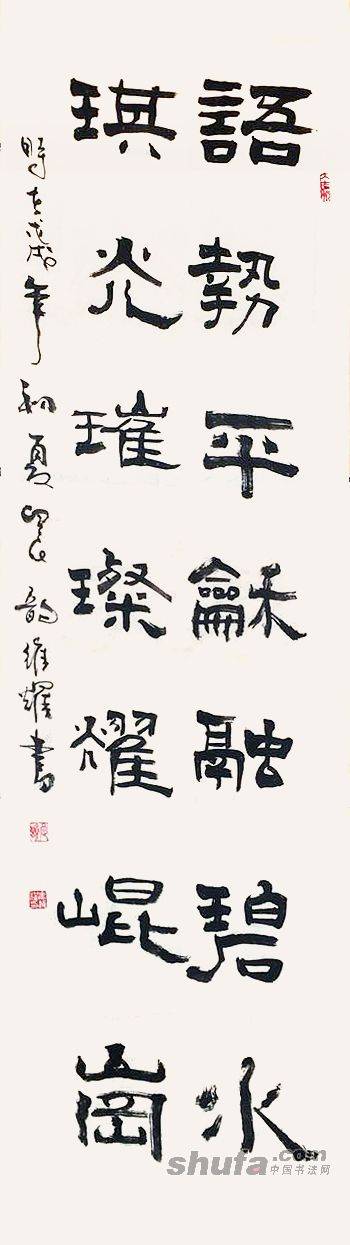 語勢平龢融碧水
琪光璀璨耀崐崗
時在戊戌年初夏韵維耀書
shufa.com
中国书法网